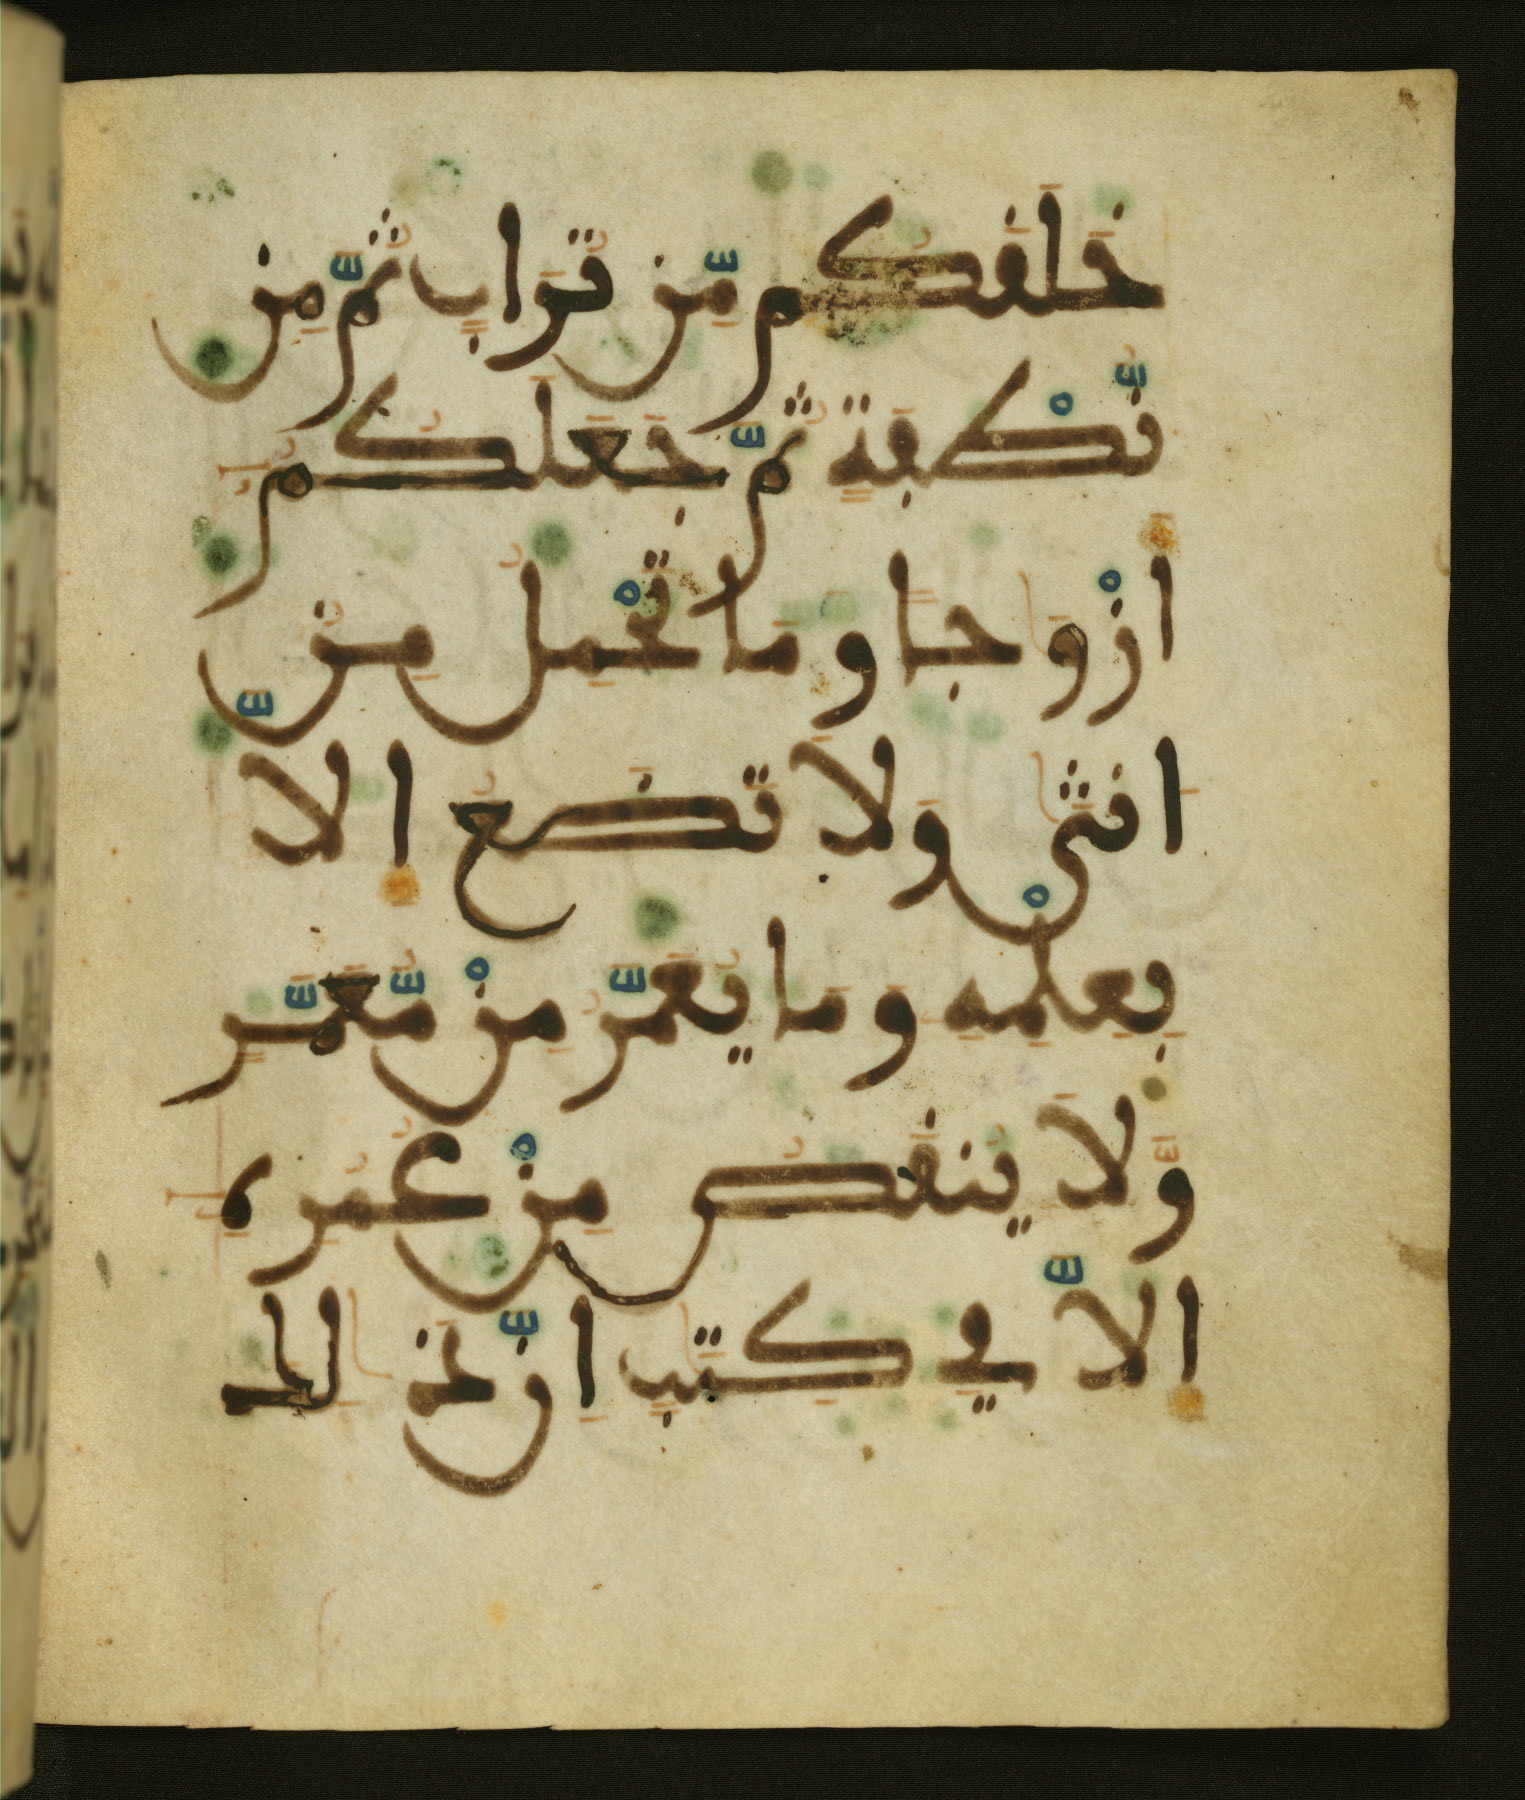 خَلَفَكُم مِّن تُرَابٍ ثُمَّ مِن
نُّطْفَةٍ ثُمَّ جَعَلَكُمُ
أَزْوَاجًا وَمَا تَحْمِلُ مِنُ
انثَى وَلَا تَضَعُ إِلَّا
بِعِلْمِهِ وَمَا يُعَمَّرُ مِنْ مُّعَمَّرٍ
وَلَا يُنفَصُ مِنْ عُمُرِهِ
إِلَّا فِي كِتَبٍ إِنَّ ذَلِكَ